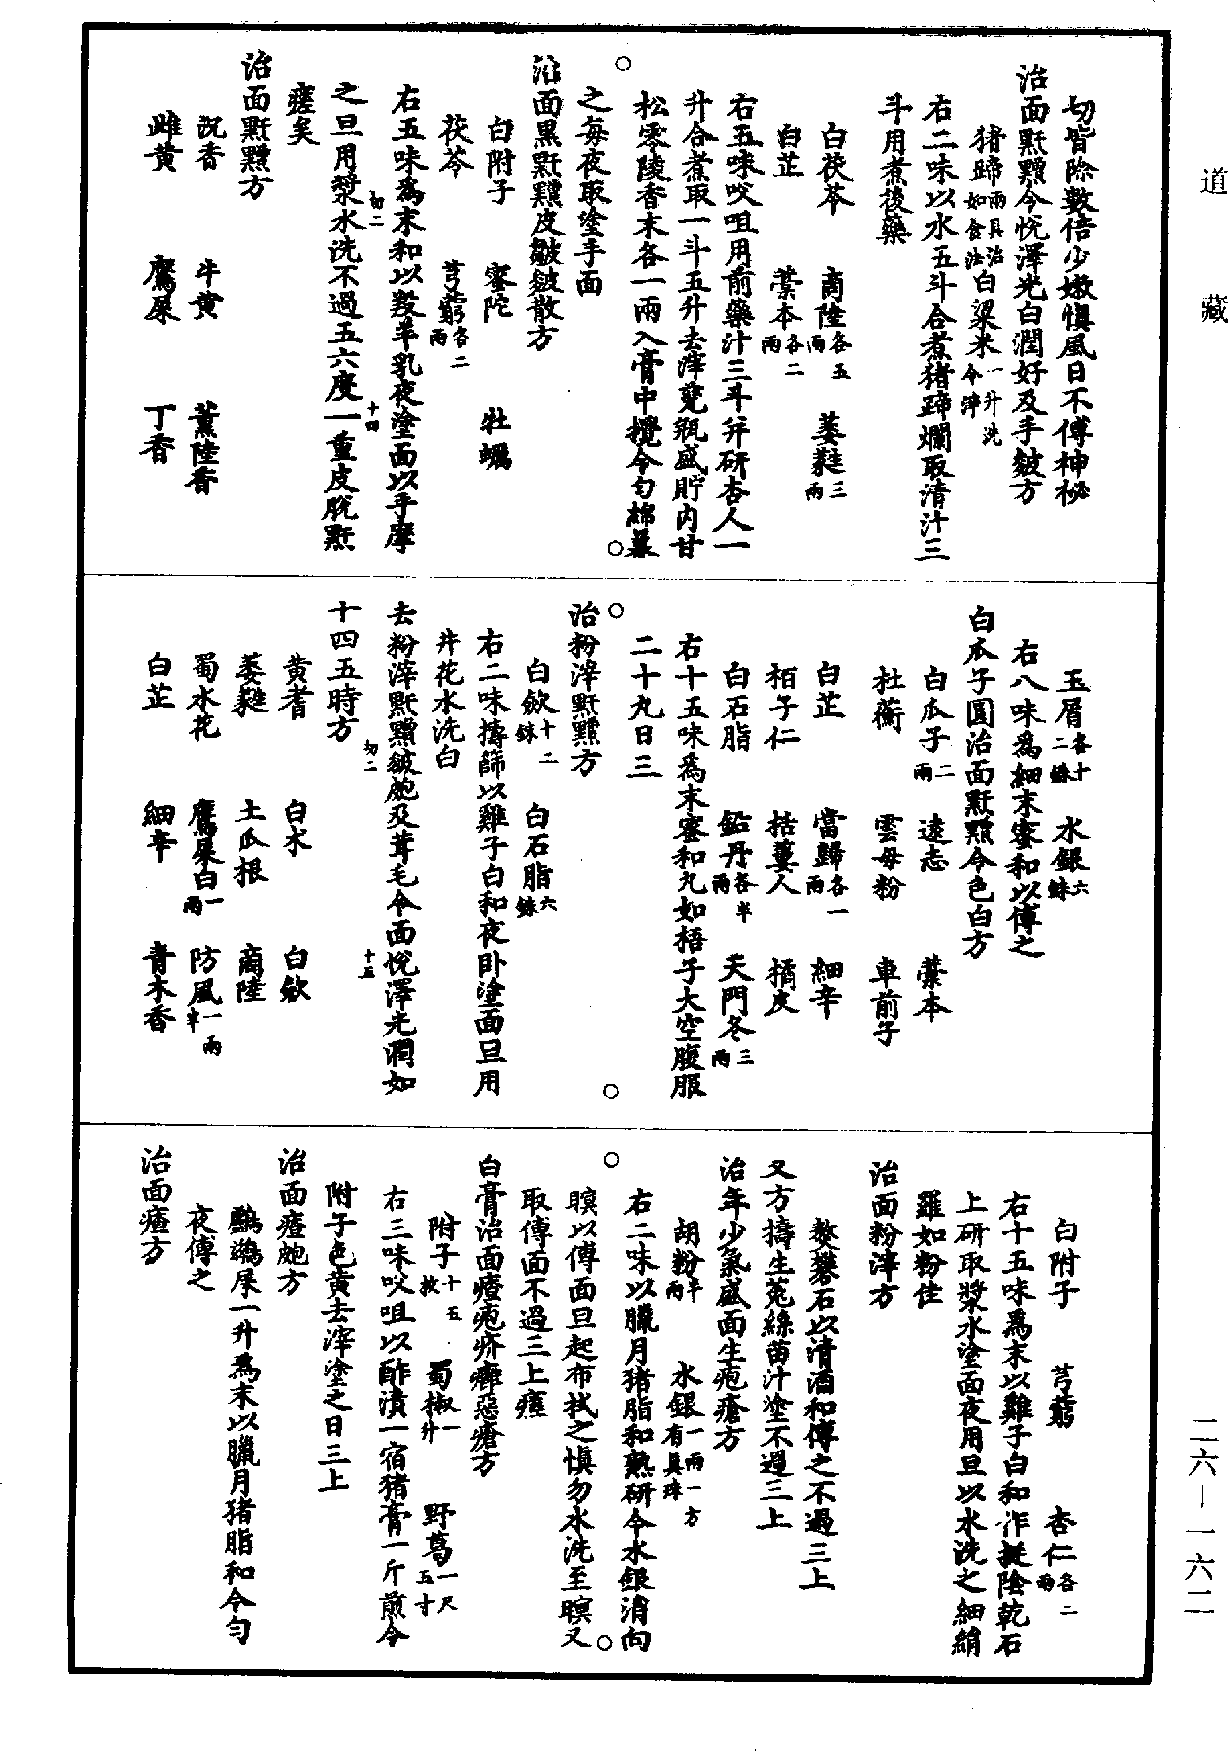 道藏
切皆除數倍少嫩慎風日不傅神祕
治面䵟䵳令悅澤光白潤好及手皴方
猪蹄兩具治如食法白粱米一升洗令淨
右二味以水五斗合煮猪蹄爛取清汁三
斗用煮後藥
白茯苓 商陸各五兩 萎蕤三兩
白芷 藁本各二兩
右五味㕮咀用前藥汁三斗并研杏人一
升合煮取一斗五升去滓甆瓶盛貯內甘
松零陵香末各一兩入膏中攪令勻綿羃
之每夜取塗手面
治面黑䵟䵳皮皺皴散方
白附子 蜜陀 牡蠣
茯苓 芎藭各二兩
右五味爲末和以羖羊乳夜塗面以手摩
之旦用漿水洗不過五六度一重皮脫䵟
瘥矣
初二 十四
治面䵟䵳方
沉香 牛黃 薰陸香
雌黃 鷹屎 丁香
玉屑各十二銖 水銀六銖
右八味爲細末蜜和以傅之
白瓜子圓治面䵟䵳令色白方
白瓜子二兩 遠志 藁本
杜蘅 雲母粉 車前子
白芷 當歸各一兩 細辛
柏子仁 栝蔞人 橘皮
白石脂 鉛丹各半兩 天門冬三兩
右十五味爲末蜜和丸如梧子大空腹服
二十九日三
治粉滓䵟䵳方
白歛十二銖 白石脂六銖
右二味擣篩以雞子白和夜卧塗面旦用
井花水洗白
去粉滓䵟䵳皴皰及茸毛令面悅澤光潤如
十四五時方
初二 十五
黃耆 白朮 白歛
萎蕤 土瓜根 商陸
蜀水花 鷹屎白一兩 防風一兩半
白芷 細辛 青木香
白附子 芎藭 杏仁各二兩
右十五味爲末以雞子白和作挺陰乾石
上研取漿水塗面夜用旦以水洗之細絹
羅如粉佳
治面粉滓方
熬礬石以清酒和傅之不過三上
又方擣生菟絲苗汁塗不過三上
治年少氣盛面生皰瘡方
胡粉半兩 水銀一兩一方有真珠
右二味以臘月猪脂和熟研令水銀消向
暝以傅面旦起布拭之慎勿水洗至暝又
取傅面不過三上瘥
白膏治面㾴皰疥癬惡瘡方
附子十五枚 蜀椒一升 野葛一尺五寸
右三味㕮咀以酢漬一宿猪膏一斤煎令
附子色黃去滓塗之日三上
治面㾴皰方
鸕鷀屎一升爲末以臘月猪脂和令勻
夜傅之
治面㾴方
二六—一六二